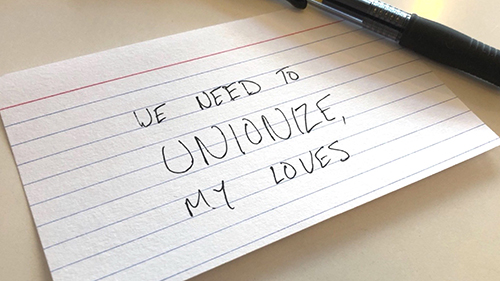 WE NEED TO
UNIONIZE,
MY LOVES